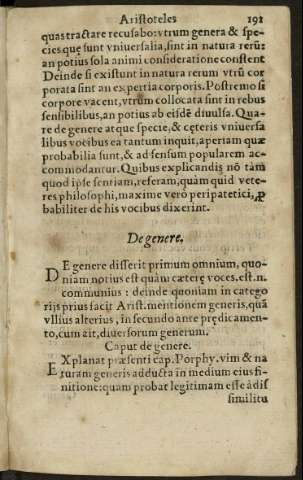 Aristoteles 191
quas tractare recusabo: vtrum genera & spe-
cies, quę sunt vniuersalia, sint in natura rerū:
an potius sola animi consideratione constent
Deinde si existunt in natura rerum vtrū cor
porata sint an expertia corporis. Postremo si
corpore vacent, vtrum collocata sint in rebus
sensibilibus, an potius ab eisdē diuulsa. Qua-
re de genere atque specie, & cęteris vniuersa
libus vocibus ea tantum inquit, aperiam quæ
probabilia sunt, & ad sensum popularem ac-
commodantur. Quibus explicandis nō tàm
quod ipse sentiam, referam, quàm quid vete-
res philosophi, maxime verò peripatetici, ꝓ
babiliter de his vocibus dixerint.
De genere.
DE genere disserit primum omnium, quo-
niam notius est quàm cæterę voces. est.n.
communius: deinde quoniam in catego
rijs prius facit Arist. mentionem generis, quā
vllius alterius, in secundo ante prędicamen-
to, cum ait, diuersorum generum.
Caput de genere.
EXplanat præsenti cap. Porphy. vim & na
turam generis adducta in medium eius fi-
nitione: quam probat legitimam esse à dis
similitu